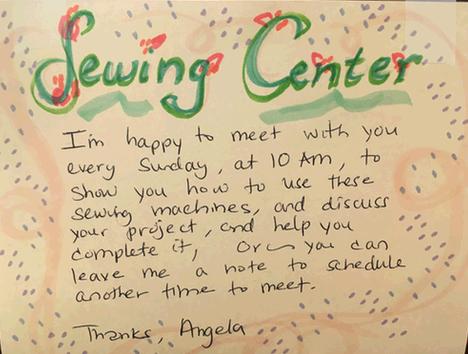 Sewing Center
I'm happy to meet with you
every Sunday, at 10 Am, to
show you how to use these
sewing machines, and discuss
your project, and help you
complete it, Or you can
leave me a note to schedule
another time to meet.
Thanks, Angela